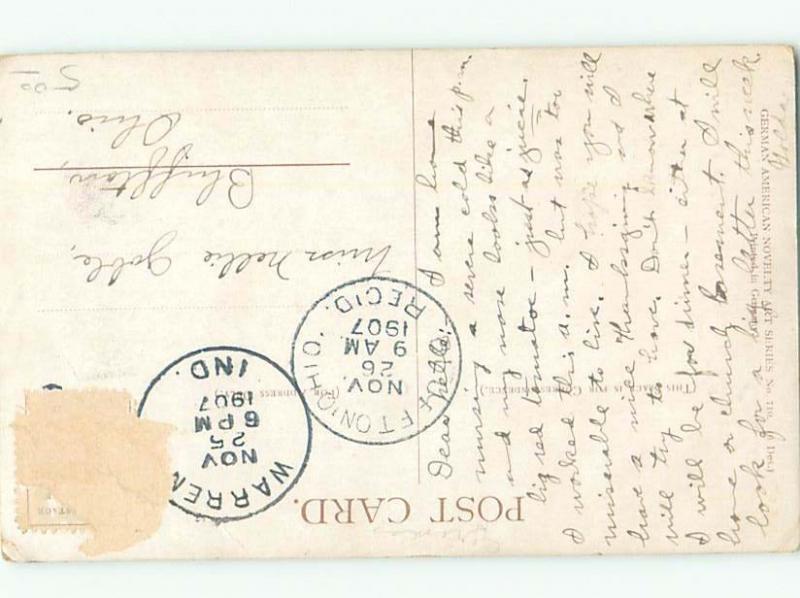 POST CARD.
(THIS SPACE IS FOR CORRESPONDENCE.)
(FOR ADDRESS
GERMAN AMERICAN NOVELTY ART SERIES No.
WARREN
NOV
25
6 PM
1907
IND.
FTON, OHIO
NOV.
26
9 AM
1907
REC'D.
Dear Nellie: I am home
nursing a severe cold this p.m.
and my nose looks like a
big red tomatoe - just as juicie.
I worked this a.m. but was too
miserable to live. I hope you will
have a nice Thanksgiving as I
will try to have. Don't know where
I will be for dinner - either at
home or church basement. I will
look for a big letter this week.
Miss Nellie Goble,
Bluffton,
Ohio.
5 00